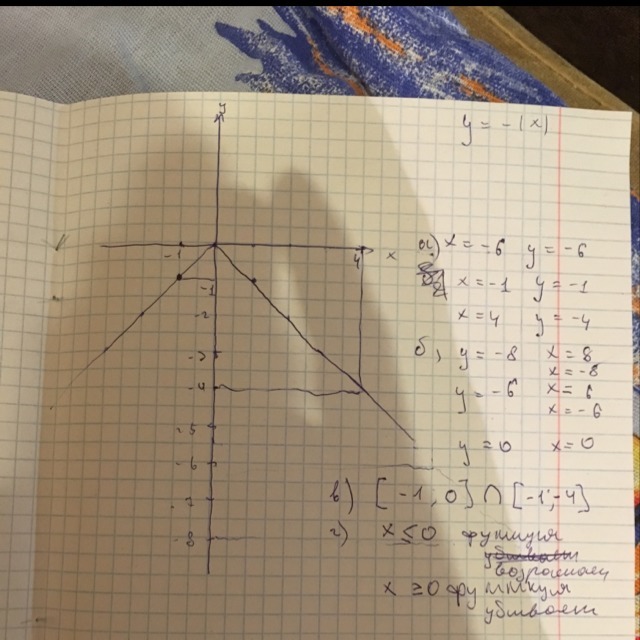 y
y = -(x)
-1
4
x
-1
-2
-3
-4
-5
-6
-7
-8
а) x = -6 y = -6
x = -1 y = -1
x = 4 y = -4
б) y = -8 x = 8
x = -8
y = -6 x = 6
x = -6
y = 0 x = 0
в) [-1, 0] ∩ [-1; -4]
г) x ≤ 0 функция
убывает
возрастает
x ≥ 0 функция
убывает